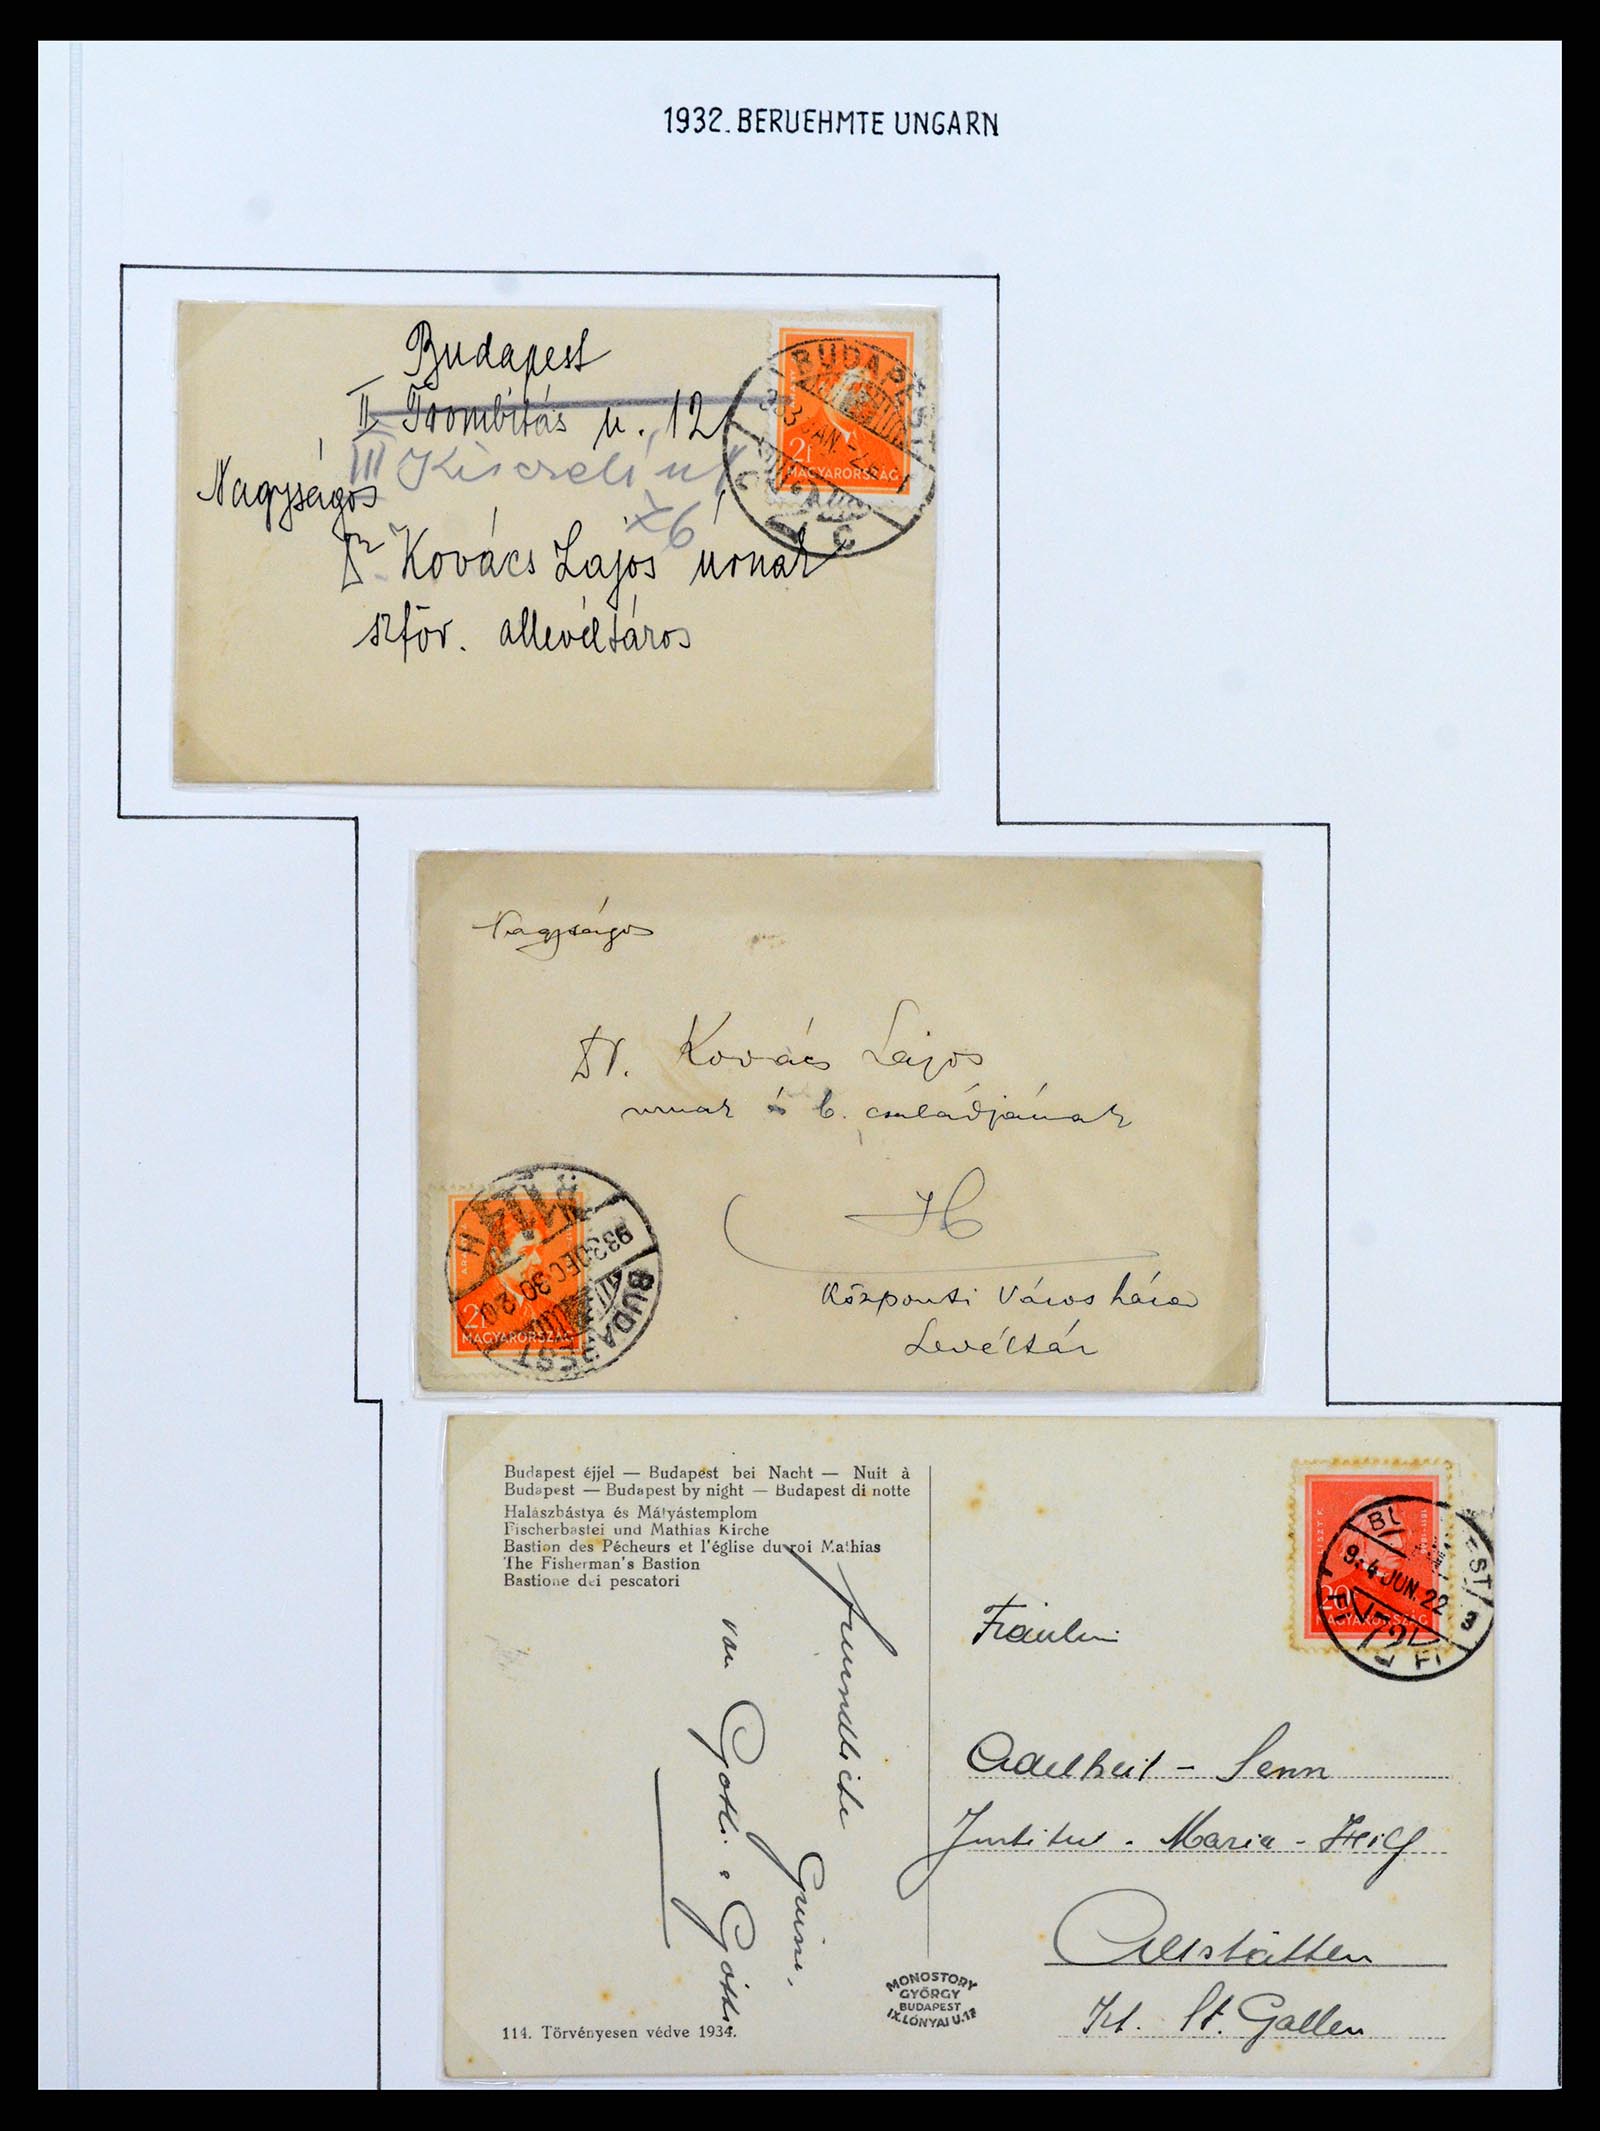 1932. BERUEHMTE UNGARN
Budapest
II Trombitás u. 12
III Kiscelli u
76
Nagyságos
Dr Kovács Lajos úrnak
szföv. allevéltáros
BUDAPEST
933 JAN
2f
MAGYARORSZÁG
Nagyságos
Dr. Kovács Lajos
urnak és b. családjának
H
Központi Városháza
Levéltár
BUDAPEST
933 DEC 30 20
2f
MAGYARORSZÁG
Budapest éjjel — Budapest bei Nacht — Nuit à
Budapest — Budapest by night — Budapest di notte
Halászbástya és Mátyástemplom
Fischerbastei und Mathias Kirche
Bastion des Pécheurs et l'église du roi Mathias
The Fisherman's Bastion
Bastione dei pescatori
freundliche Grüsse,
von Gotti & Götti
114. Törvényesen védve 1934.
MONOSTORY
GYÖRGY
BUDAPEST
IX. LÓNYAI U. 12
LISZT F.
20f
MAGYARORSZÁG
934 JUN. 22
72
Fräulein
Adelheit - Senn
Institut - Maria - Heilf
Altstätten
Kt. St. Gallen